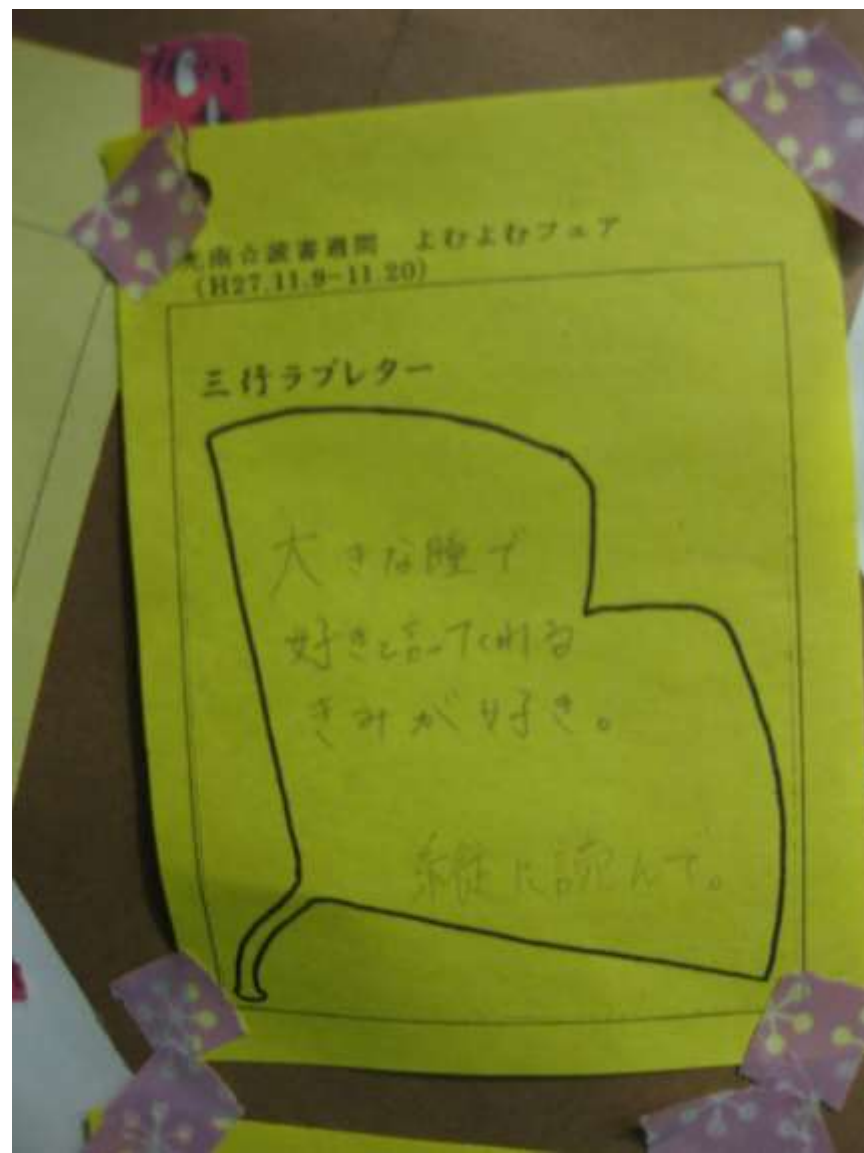 光南☆読書週間 よむよむフェア
(H27.11.9-11.20)
三行ラブレター
大きな瞳で
好きと言ってくれる
きみが好き。
縦に読んで。